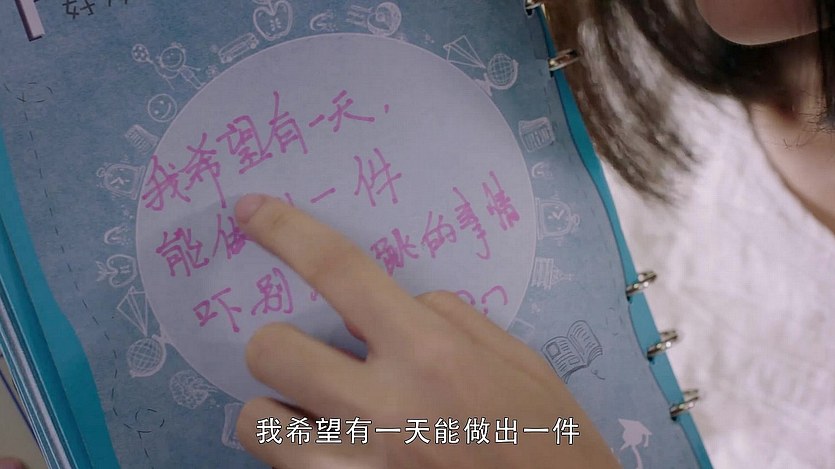 好
我希望有一天，
能做一件
吓别跳的事情
我希望有一天能做出一件